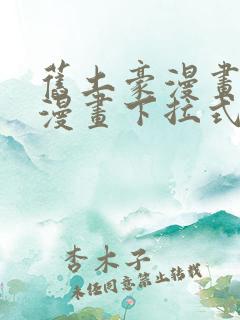 舊土豪漫畫
漫畫下拉式
杏木子
未經同意禁止轉載